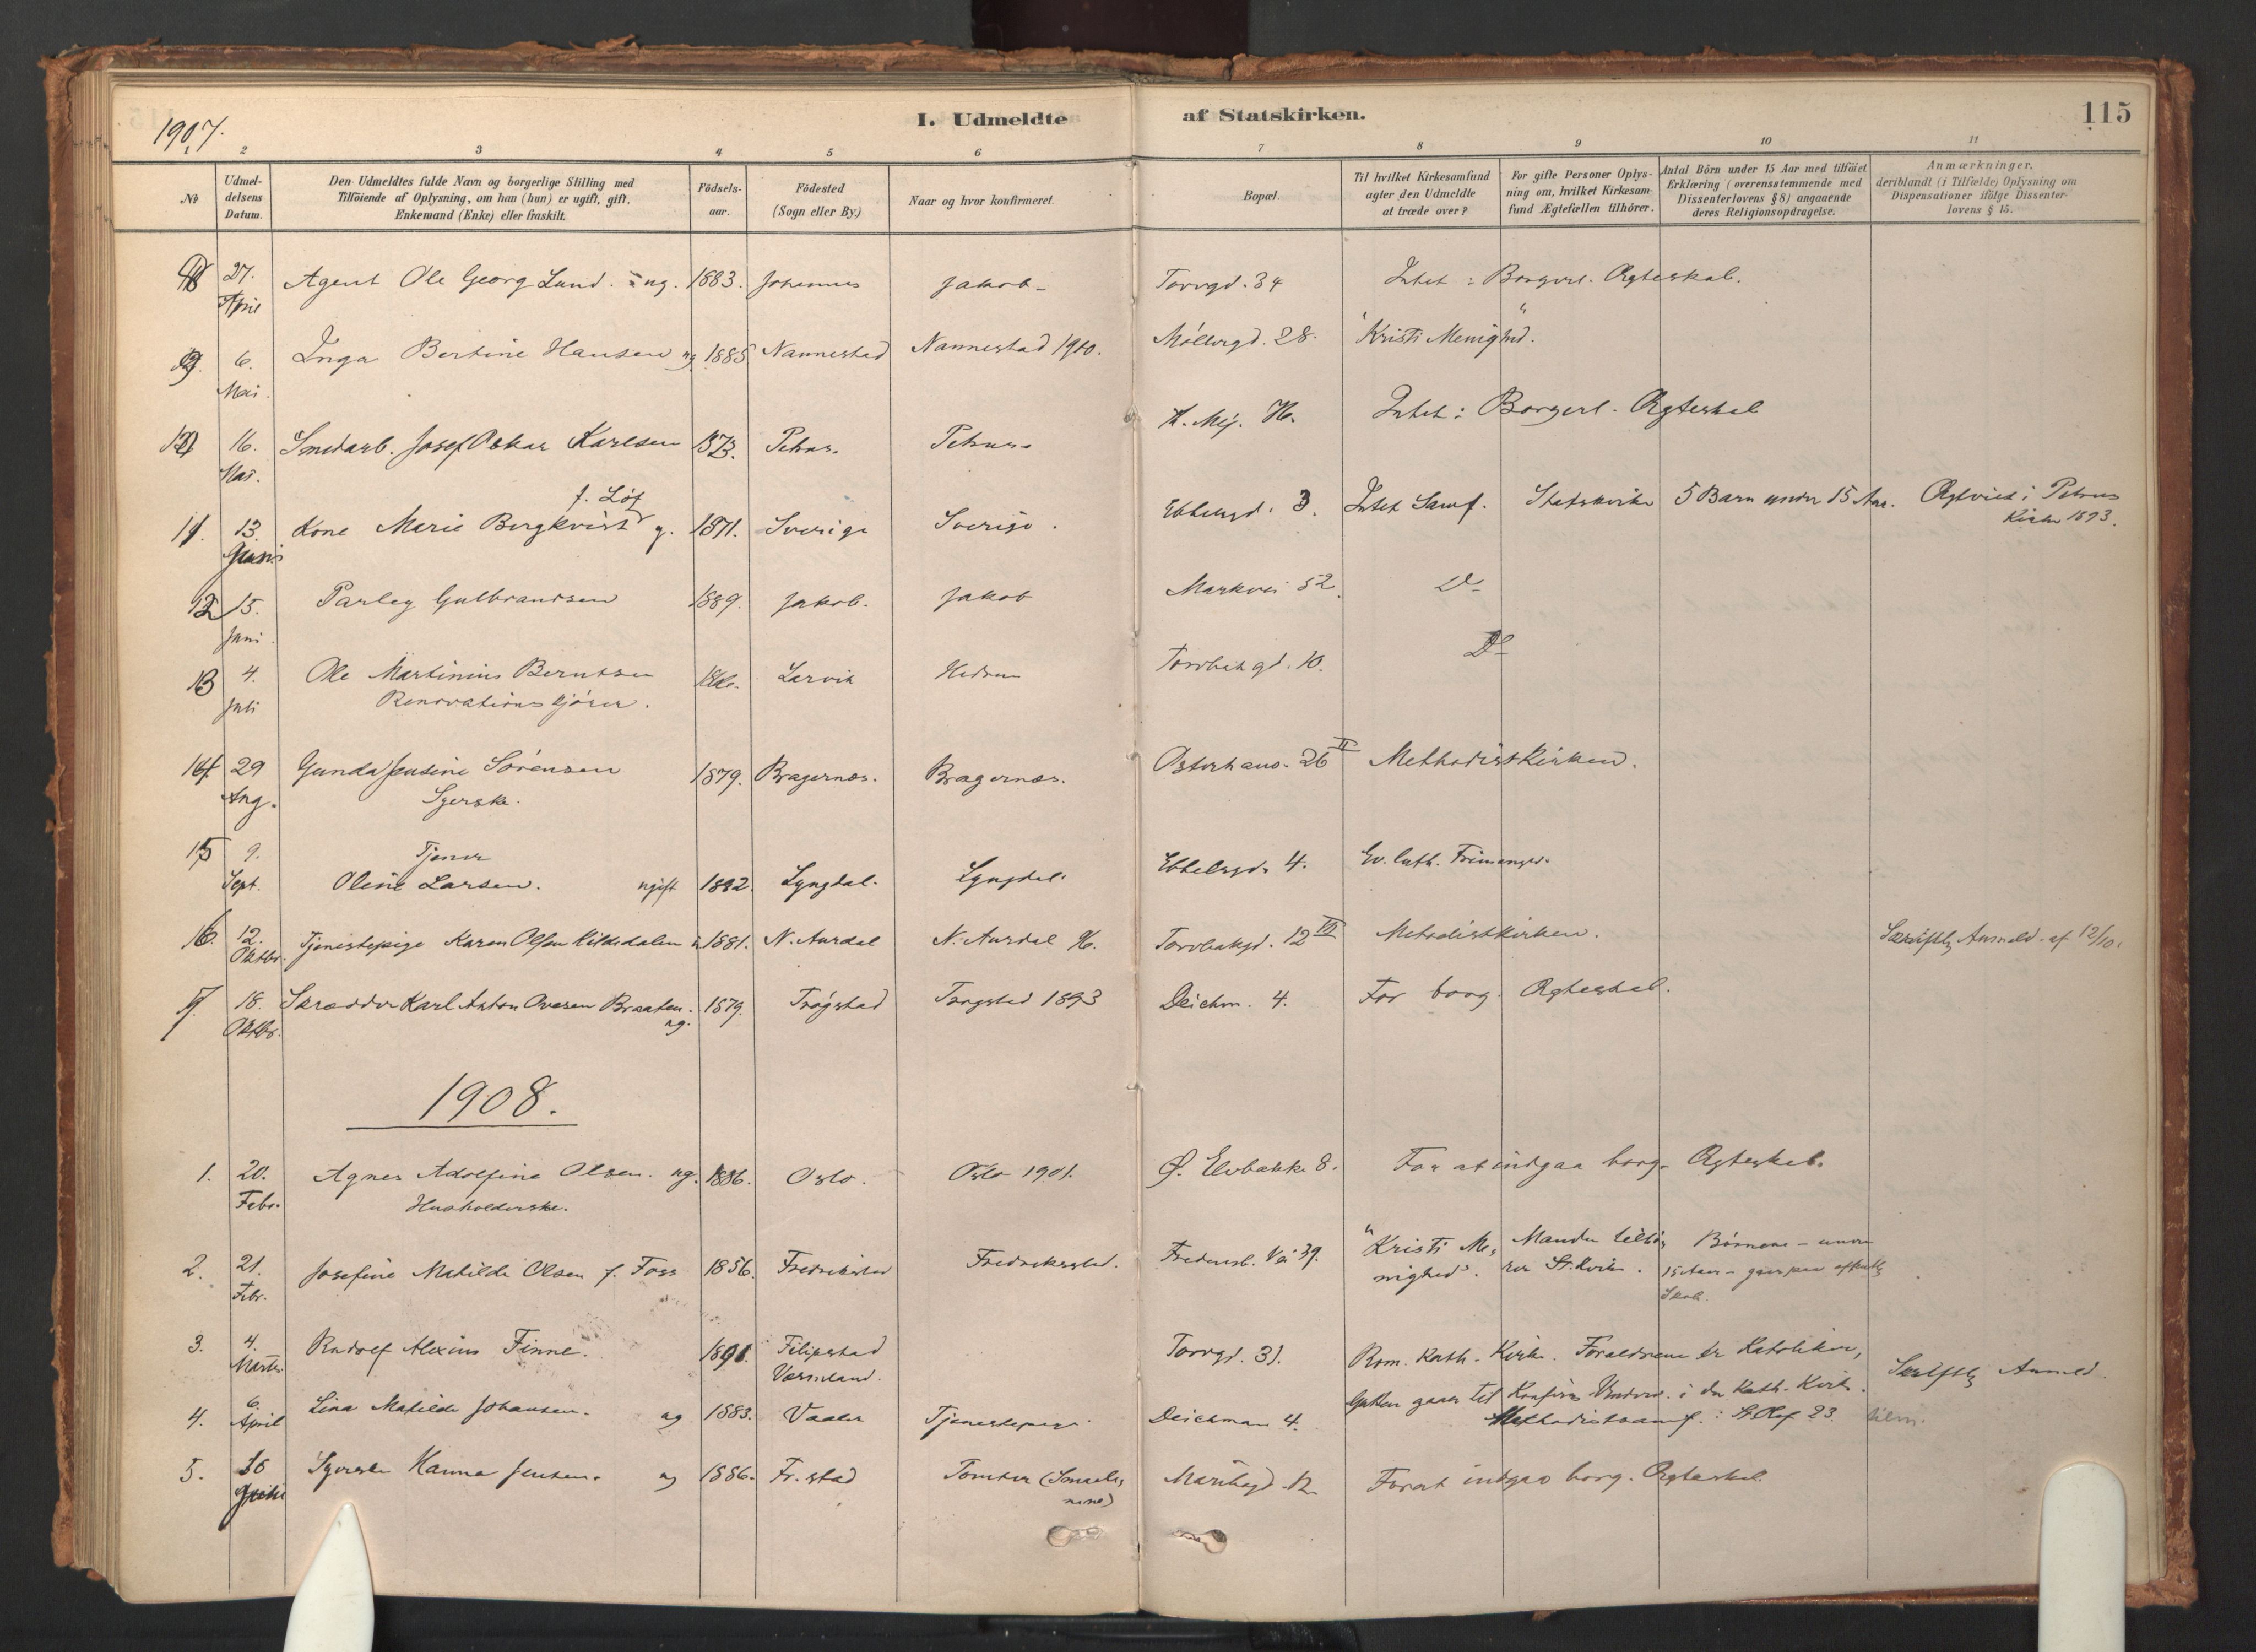 1907.
I. Udmeldte af Statskirken.
115
1 2 3 4 5 6 7 8 9 10 11
No
Udmel-
delsens
Datum.
Den Udmeldtes fulde Navn og borgerlige Stilling med
Tilföiende af Oplysning, om han (hun) er ugift, gift,
Enkemand (Enke) eller fraskilt.
Födsels-
aar.
Födested
(Sogn eller By.)
Naar og hvor konfirmeret.
Bopæl.
Til hvilket Kirkesamfund
agter den Udmeldte
at træde over?
For gifte Personer Oplys-
ning om, hvilket Kirkesam-
fund Ægtefællen tilhörer.
Antal Börn under 15 Aar med tilföiet
Erklæring (overensstemmende med
Dissenterlovens § 8) angaaende
deres Religionsopdragelse.
Anmærkninger,
deriblandt (i Tilfælde) Oplysning om
Dispensationer ifölge Dissenter-
lovens § 15.
8 27. Agent Ole Georg Lund. ug. 1883. Johannes Jakob Torvgd. 34 Intet: Borgerl. Ægteskab.
April
9. 6. Inga Bertine Hansen ug 1885 Nannestad Nannestad 1900. Møllergd. 28. "Kristi Menighed".
Mai.
16. Smedarb. Josef Oskar Karlsen 1873. Petrus. Petrus. Intet: Borgerl. Ægteskab
Mai.
f. Löf
11. 13. Kone Marie Bergkvist g. 1871. Sverige Sverige. Ebbelsgd. 3. Intet Samf. Statskirke 5 Barn under 15 Aar. Ægteviet i Petrus
Juni Kirke 1893.
12 15. Parley Gulbrandsen 1889. Jakob. Jakob Markvei 52. Do
Juni
13 4. Ole Martinius Berntsen Larvik Hedrum Torvbakgd. 10. Do
Juli Renovationskjører.
14. 29 Gunda Jensine Sörensen 1879. Bragernæs. Bragernæs. Osterhaus. 26 II Methodistkirken.
Aug. Syerske.
15 9. Tjener
Sept. Oline Larsen. ugift 1892. Lyngdal. Lyngdal. Ebbelsgd. 4. Ev. luth. Frimenigh.
16. 12. Tjenestepige Karen Olsen Kildedalen 1881. N. Aurdal N. Aurdal 96. Torvbakgd. 12 III Metodistkirken. Skriftlig Anmeld. af 12/10.
Oktbr.
17. 18. Skrædder Karl Anton Ovesen Braaten. 1879. Trøgstad Trøgstad 1893 Deichm. 4. For borg. Ægteskab.
Oktbr. ug.
1908.
1. 20. Agnes Adolfine Olsen. ug. 1886. Oslo. Oslo 1901. Ø. Elvbakke 8. For at indgaa borg. Ægteskab.
Febr. Husholderske.
2. 21. Josefine Matilde Olsen f. Foss 1856. Fredrikstad Fredriksstad. Fredensb. Vei 39. "Kristi Me- Manden tilhö- Börnene - under
Febr. nighed". rer St.kirken. 15 Aar - gaar paa offentlig
Skole.
3. 4. Rudolf Alexius Finne. 1891. Filipstad Torvgd. 31. Rom. Kath. Kirke. Forældrene er Katoliker,
Marts. Værmland. Gutten gaar til Konfirm. Underv. i den Kath. Kirke. Skriftlig Anmeld.
4. 6. Lina Matilde Johansen. ug 1883. Vaaler Tjenestepige Deichman 4. Methodistsamf.: St. Olaf 23.
April
5. 30 Syerske Hanna Jensen. ug 1886. Fr.stad Tomter (Smaale- Maribogd. 12 For at indgaa borg. Ægteskab.
Juni nene)